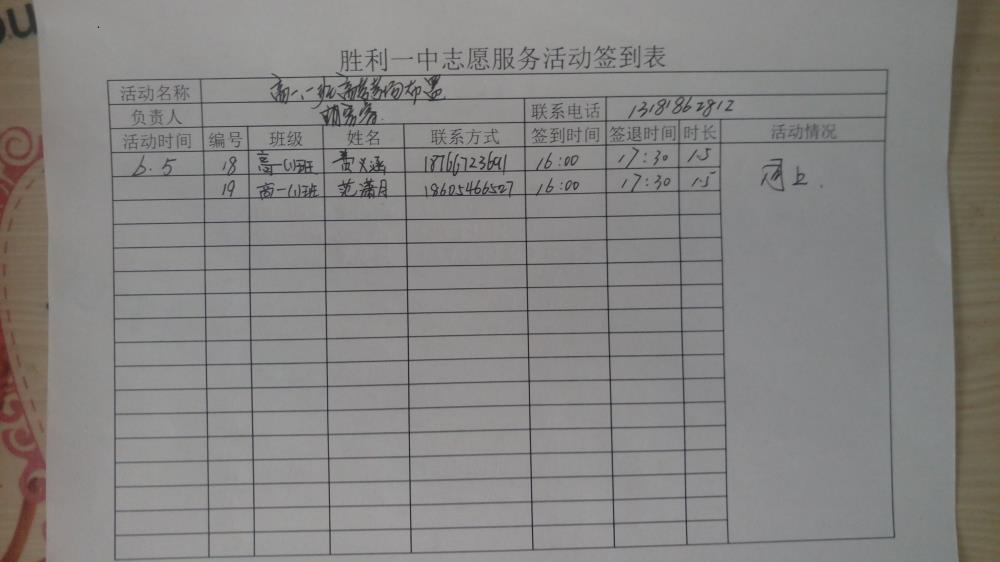 胜利一中志愿服务活动签到表
活动名称 高一、一班高考考场布置
负责人 联系电话 13181862812
活动时间 编号 班级 姓名 联系方式 签到时间 签退时间 时长 活动情况
6.5 18 高一(1)班 黄义涵 18766723691 16:00 17:30 1.5 同上.
19 高一(1)班 范潇月 18605466527 16:00 17:30 1.5